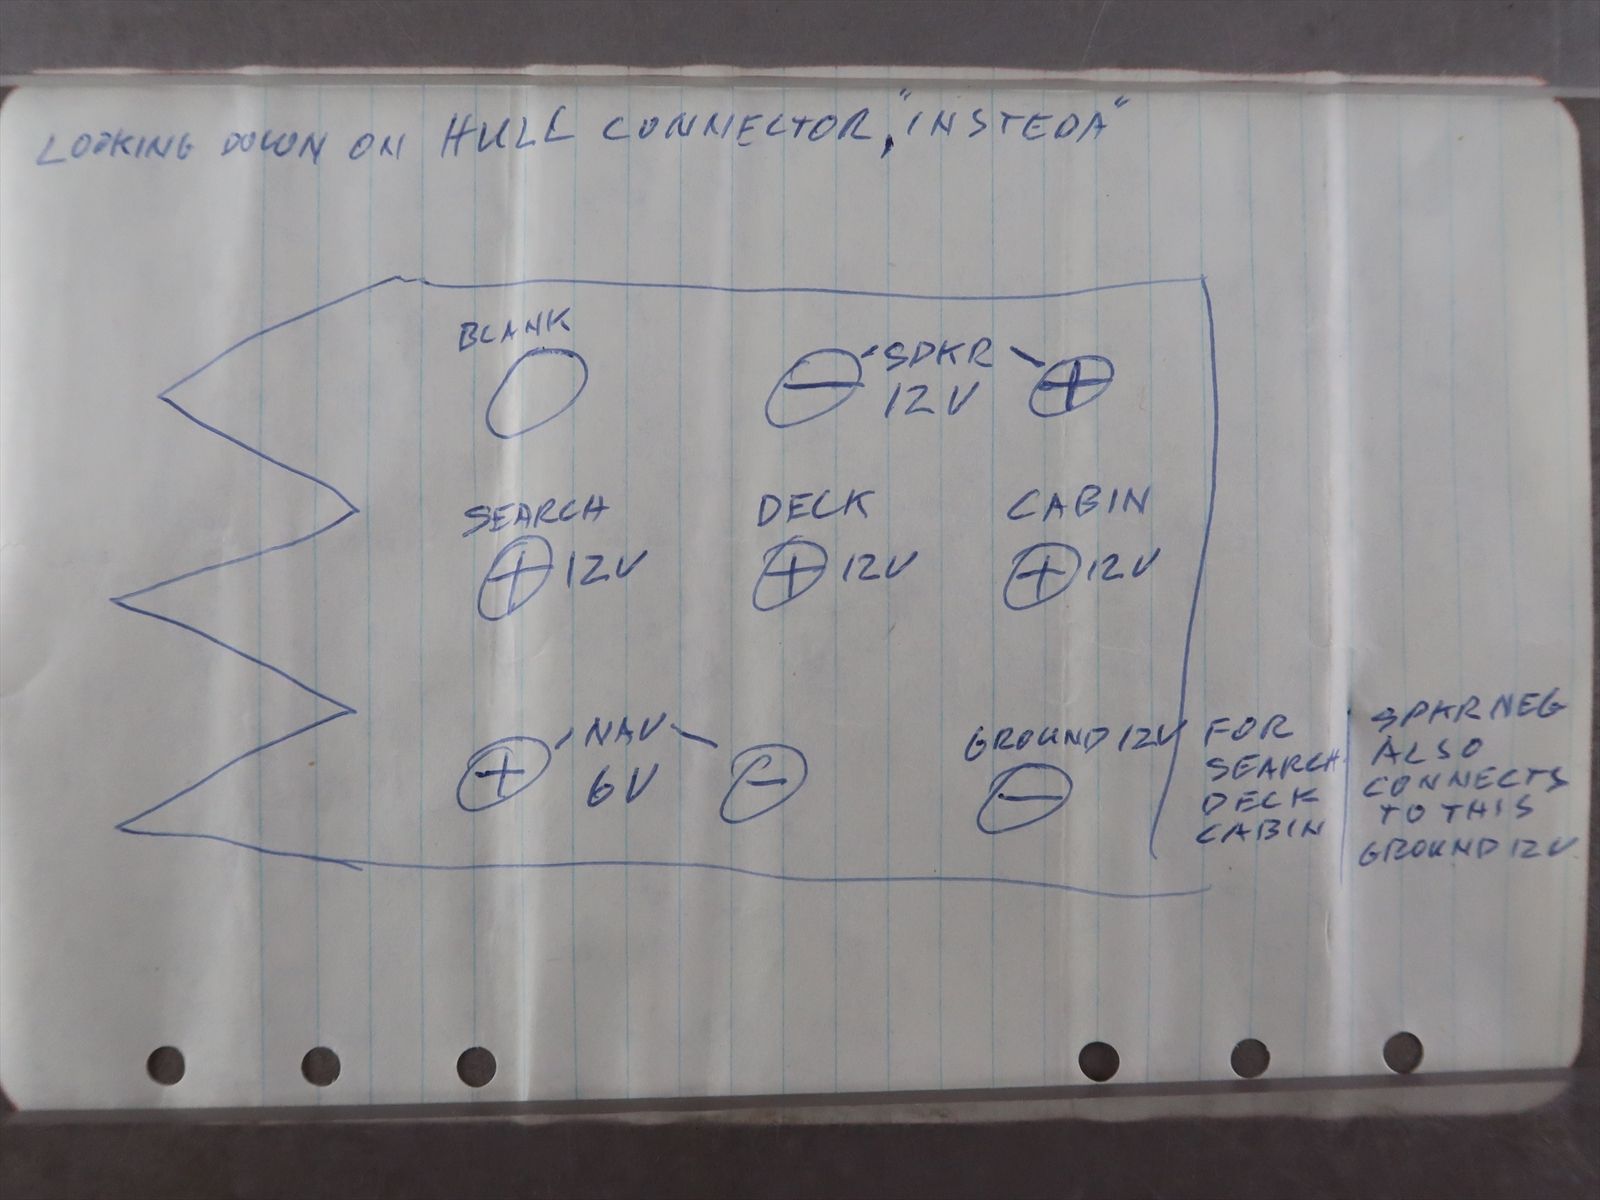 LOOKING DOWN ON HULL CONNECTOR, "INSTEDA"
BLANK
- SPKR +
12V
SEARCH DECK CABIN
+ 12V + 12V + 12V
+ NAV -
6V
GROUND 12V
-
FOR
SEARCH
DECK
CABIN
SPKR NEG
ALSO
CONNECTS
TO THIS
GROUND 12V